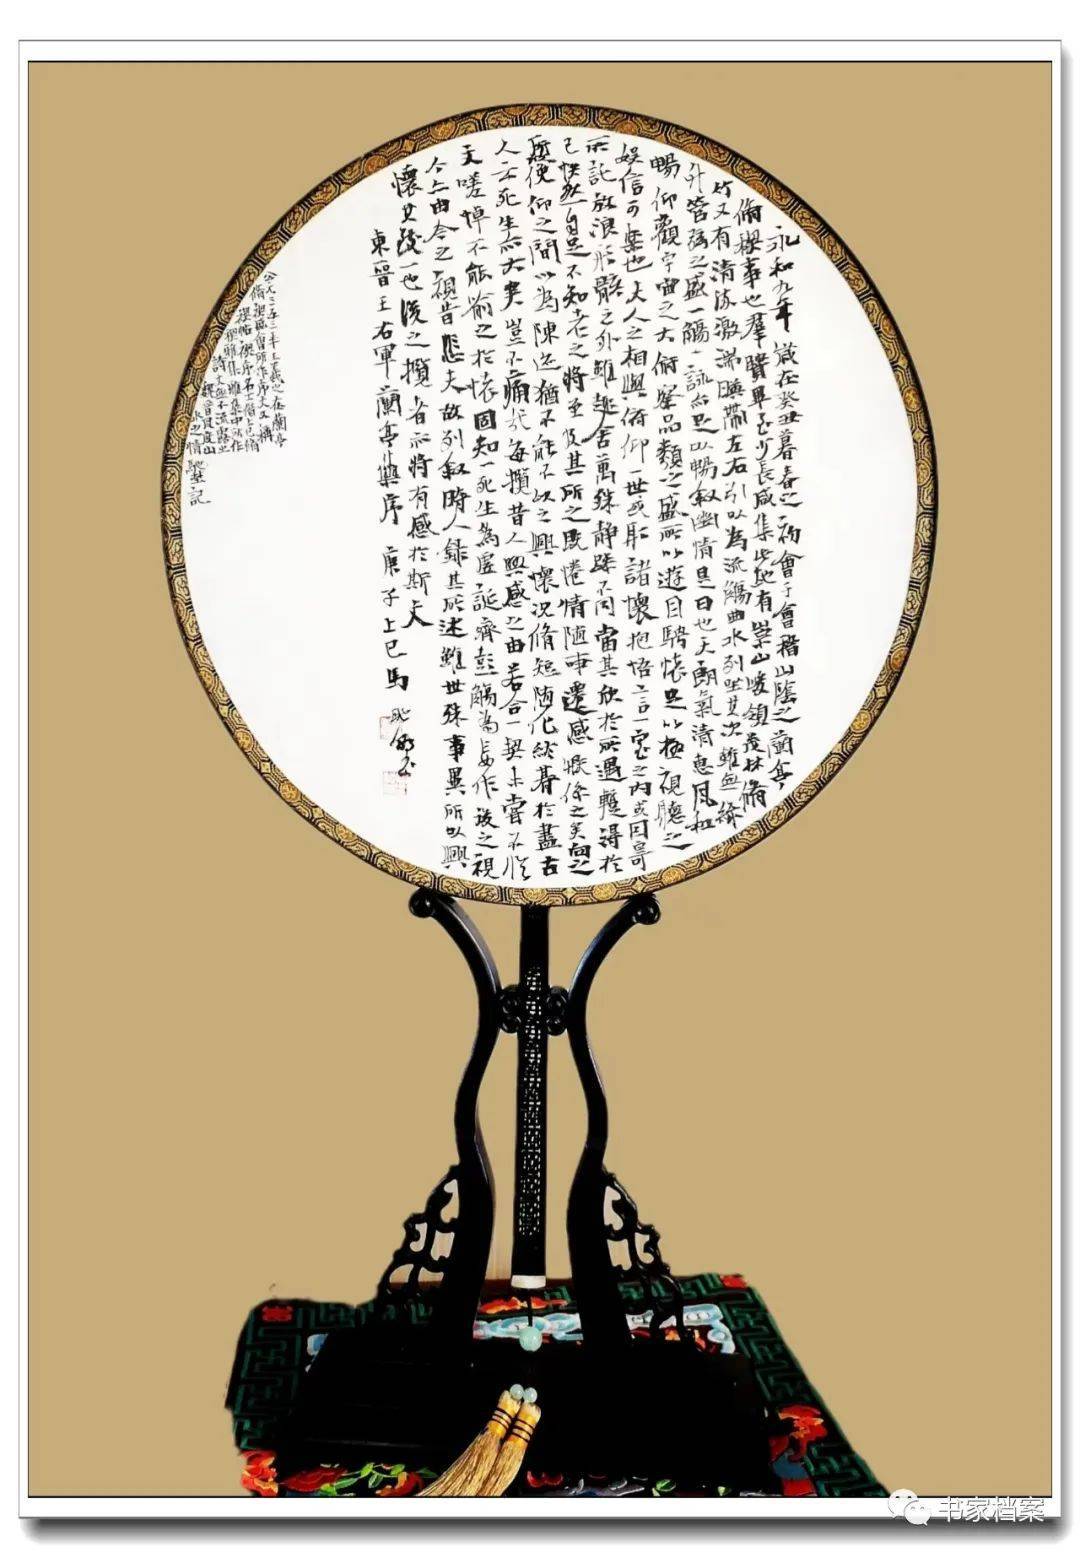 永和九年歲在癸丑暮春之初會于會稽山陰之蘭亭
脩禊事也羣賢畢至少長咸集此地有崇山峻領茂林脩
竹又有清流激湍暎帶左右引以為流觴曲水列坐其次雖無絲
竹管弦之盛一觴一詠亦足以暢叙幽情是日也天朗氣清惠風和
暢仰觀宇宙之大俯察品類之盛所以遊目騁懷足以極視聽之
娛信可樂也夫人之相與俯仰一世或取諸懷抱悟言一室之內或因寄
所託放浪形骸之外雖趣舍萬殊静躁不同當其欣於所遇蹔得於
己快然自足不知老之將至及其所之既惓情隨事遷感慨係之矣向之
俛仰之間以為陳迹猶不能不以之興懷況脩短隨化終朞於盡古
人云死生亦大矣豈不痛哉每攬昔人興感之由若合一契未嘗不臨
文嗟悼不能喻之於懷固知一死生為虛誕齊彭觴為妄作後之視
今亦由今之視昔悲夫故列叙時人錄其所述雖世殊事異所以興
懷其致一也後之攬者亦將有感於斯文
東晉王右軍蘭亭集序 庚子上巳馬
在蘭亭
記
书家档案